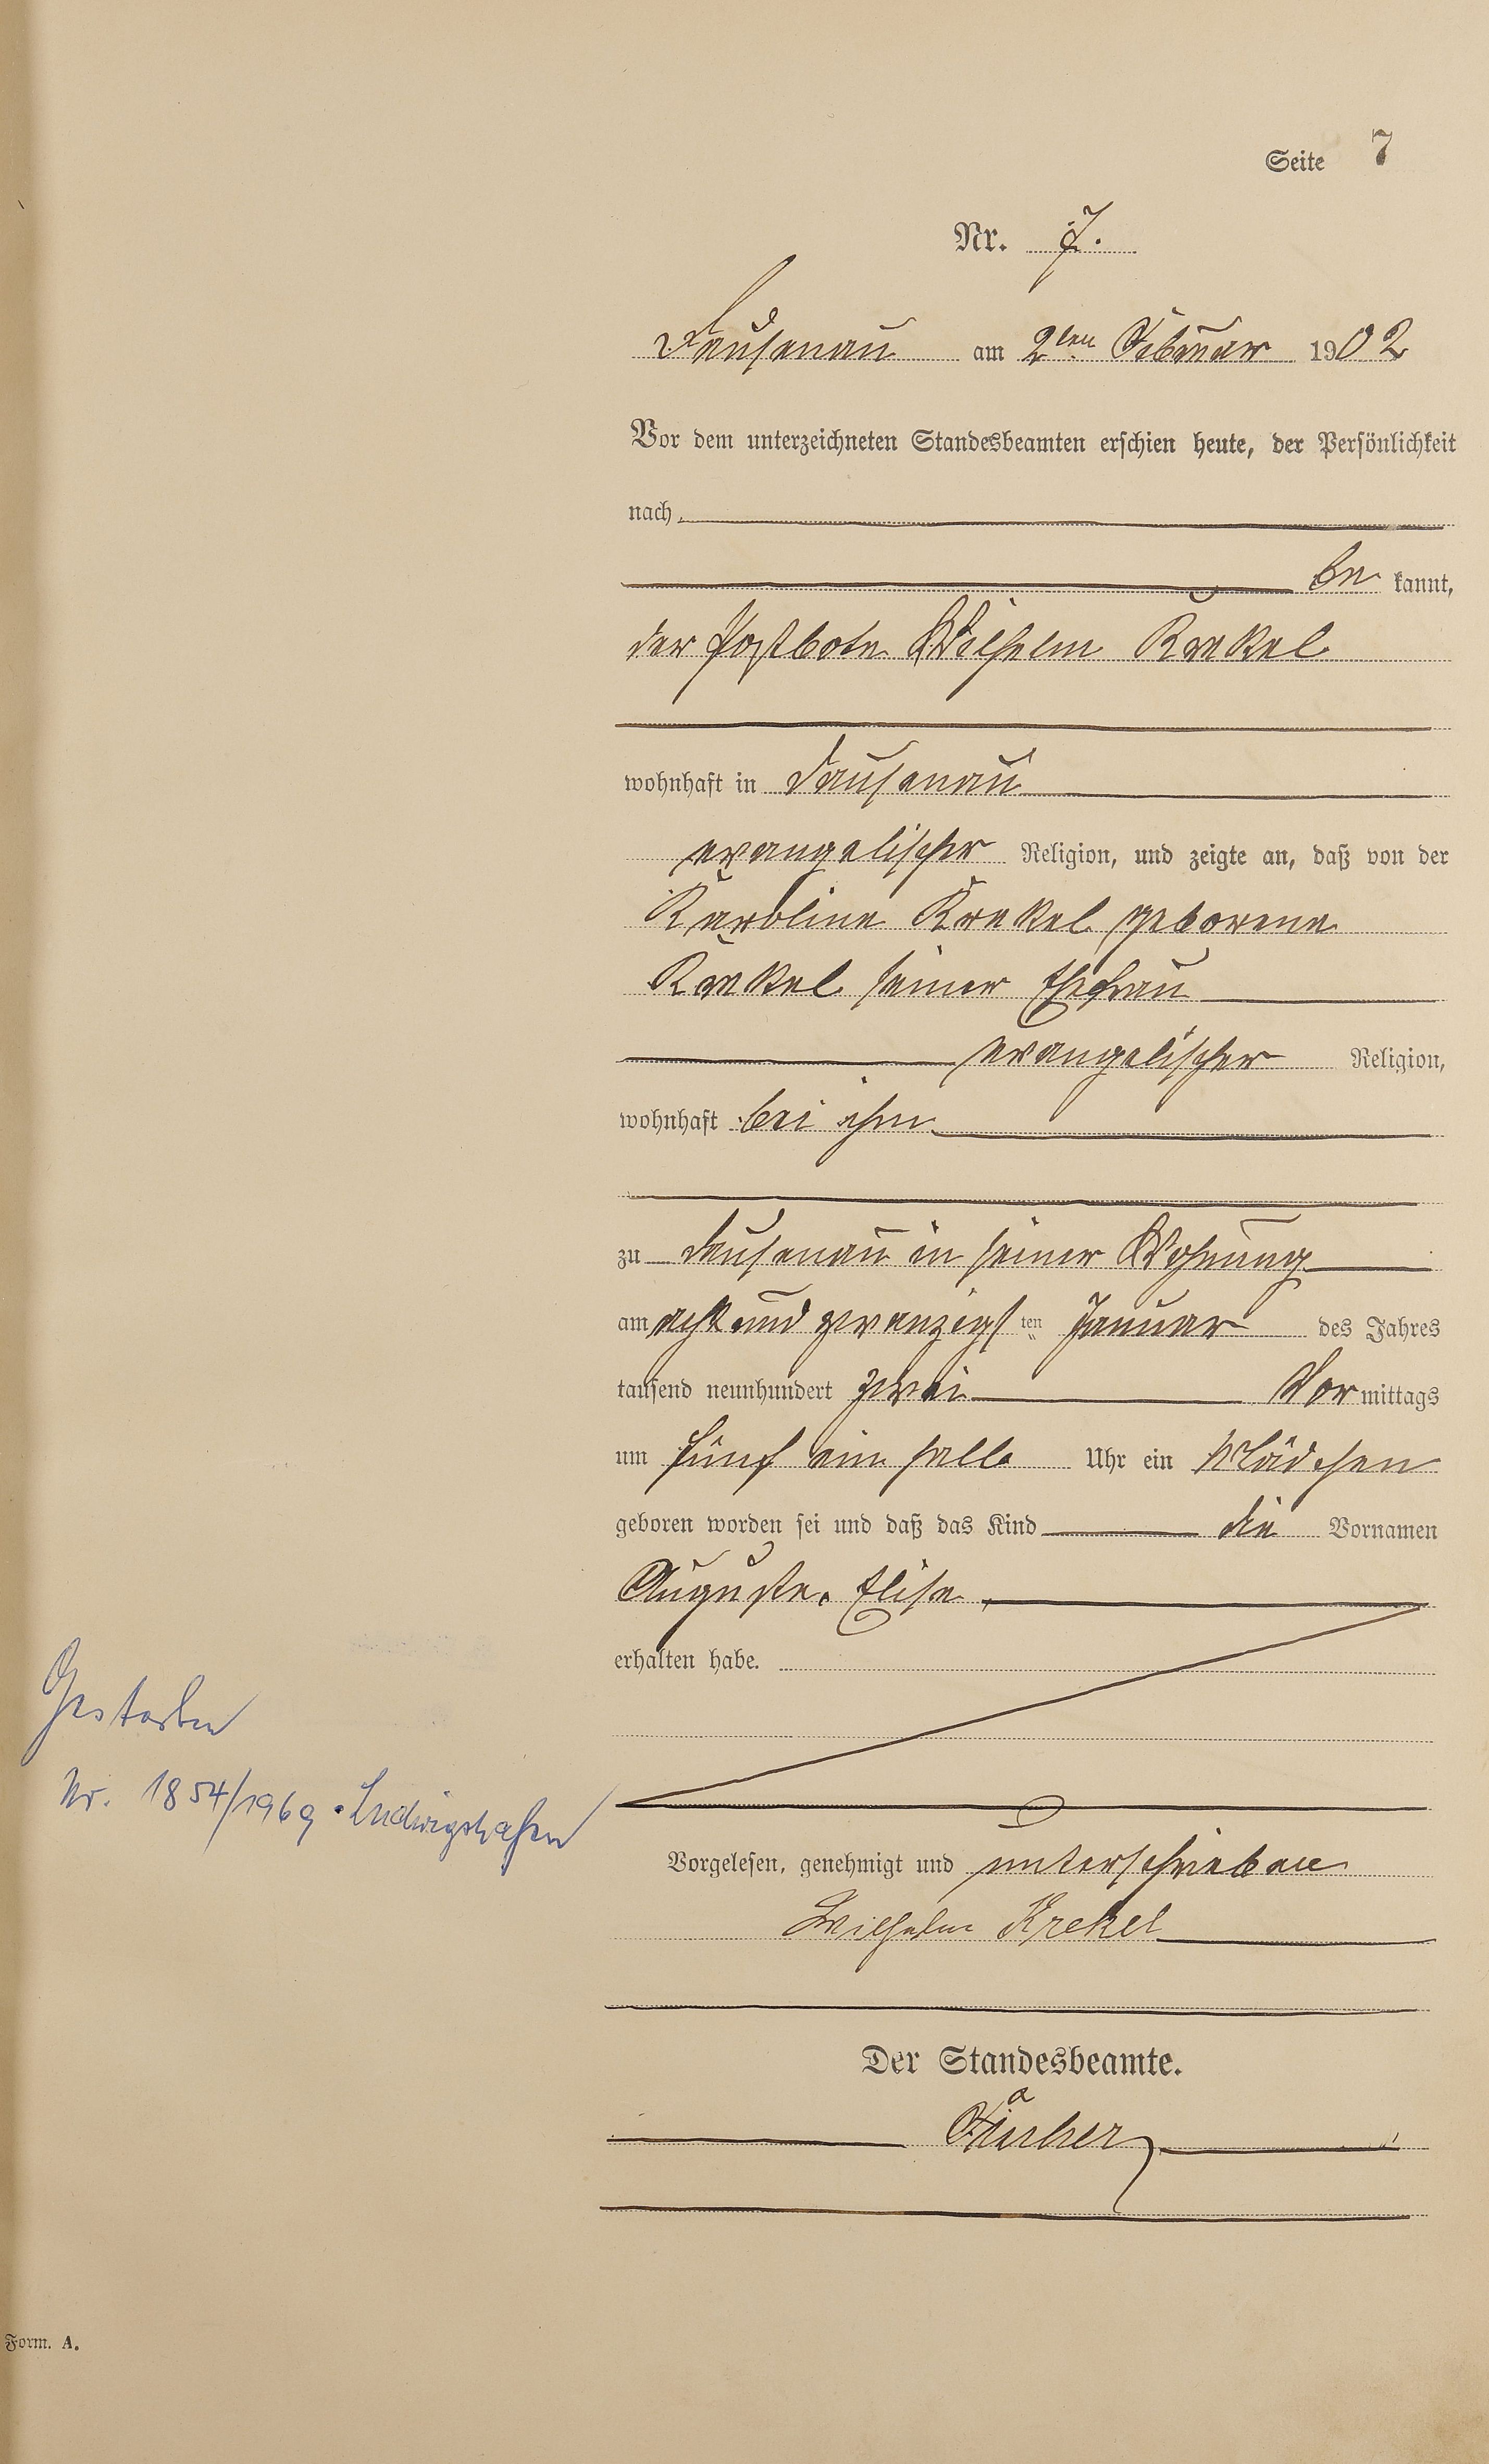 Seite 7
Nr. 7.
Dausenau am 2ten Februar 1902
Vor dem unterzeichneten Standesbeamten erschien heute, der Persönlichkeit
nach
be kannt,
der Postbote Wilhelm Krekel
wohnhaft in Dausenau
evangelischer Religion, und zeigte an, daß von der
Karoline Krekel geborene
Krekel seiner Ehefrau
evangelischer Religion,
wohnhaft bei ihm
zu Dausenau in seiner Wohnung
am acht und zwanzigsten Januar des Jahres
tausend neunhundert zwei Vormittags
um fünf ein halb Uhr ein Mädchen
geboren worden sei und daß das Kind die Vornamen
Auguste. Elise
erhalten habe.
Gestorben
Nr. 1854/1969 Ludwigshafen
Vorgelesen, genehmigt und unterschrieben
Wilhelm Krekel
Der Standesbeamte.
Form. A.